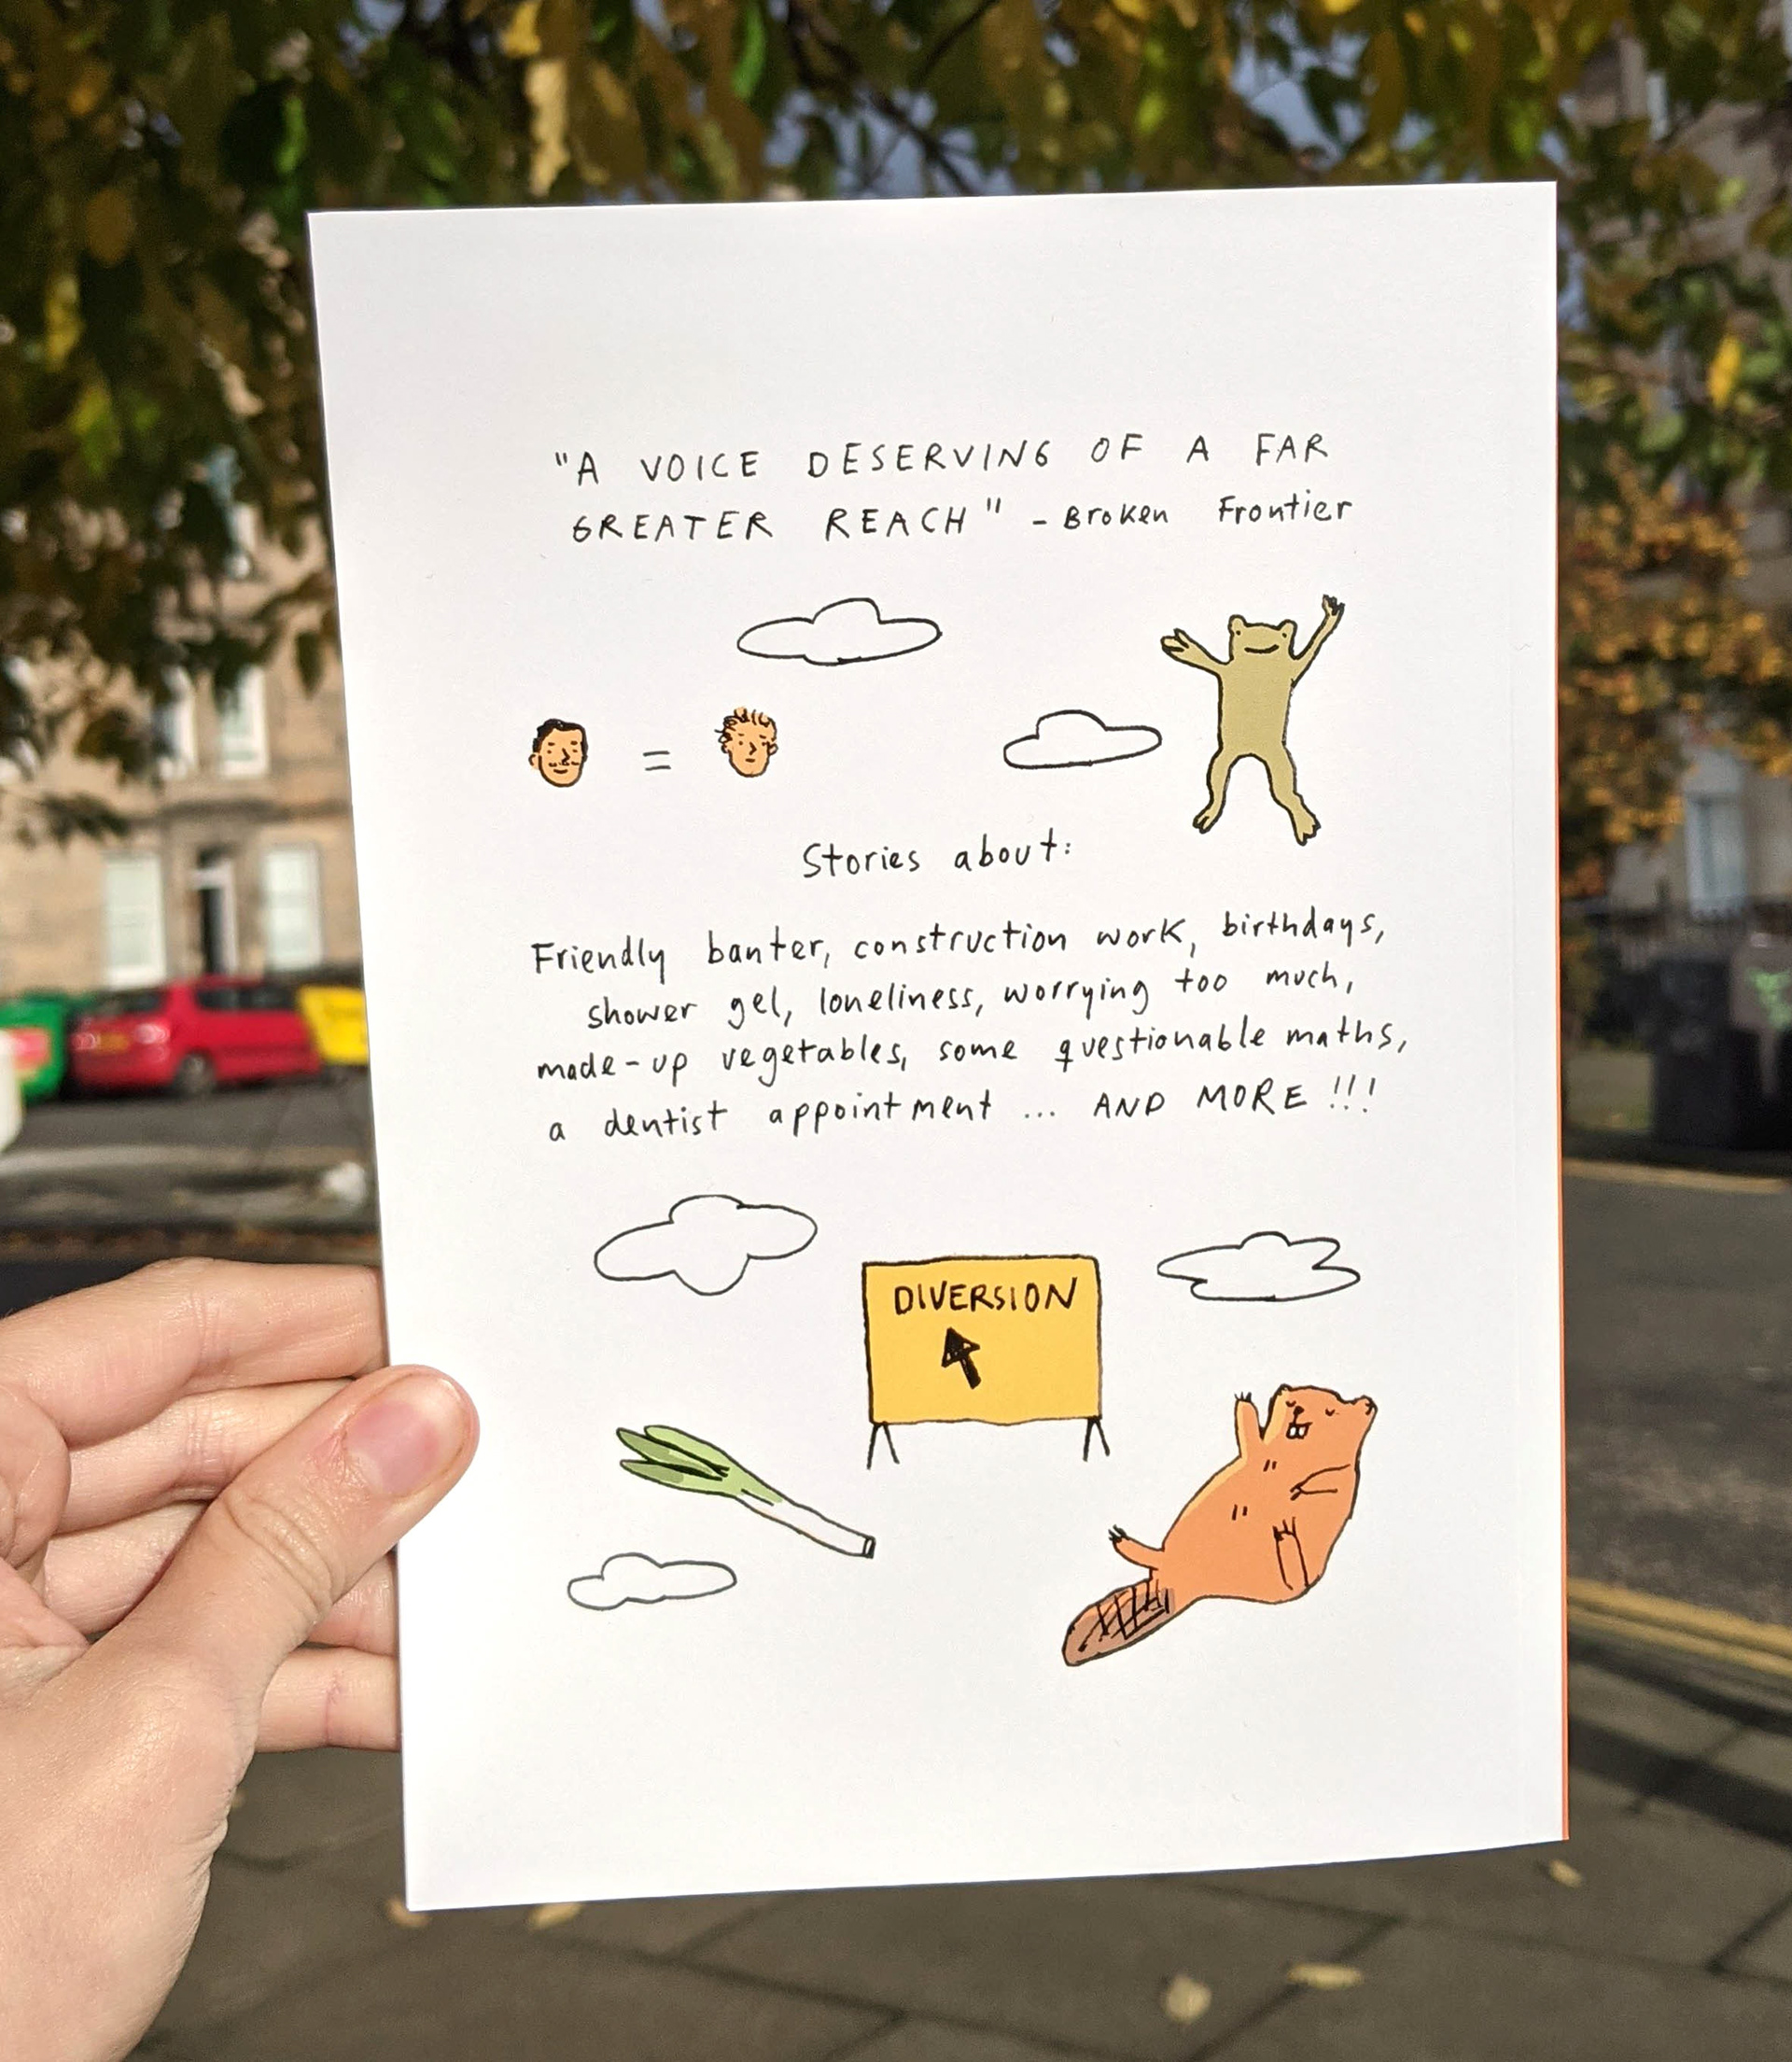 "A VOICE DESERVING OF A FAR
GREATER REACH" - Broken Frontier
=
Stories about:
Friendly banter, construction work, birthdays,
shower gel, loneliness, worrying too much,
made-up vegetables, some questionable maths,
a dentist appointment ... AND MORE !!!
DIVERSION